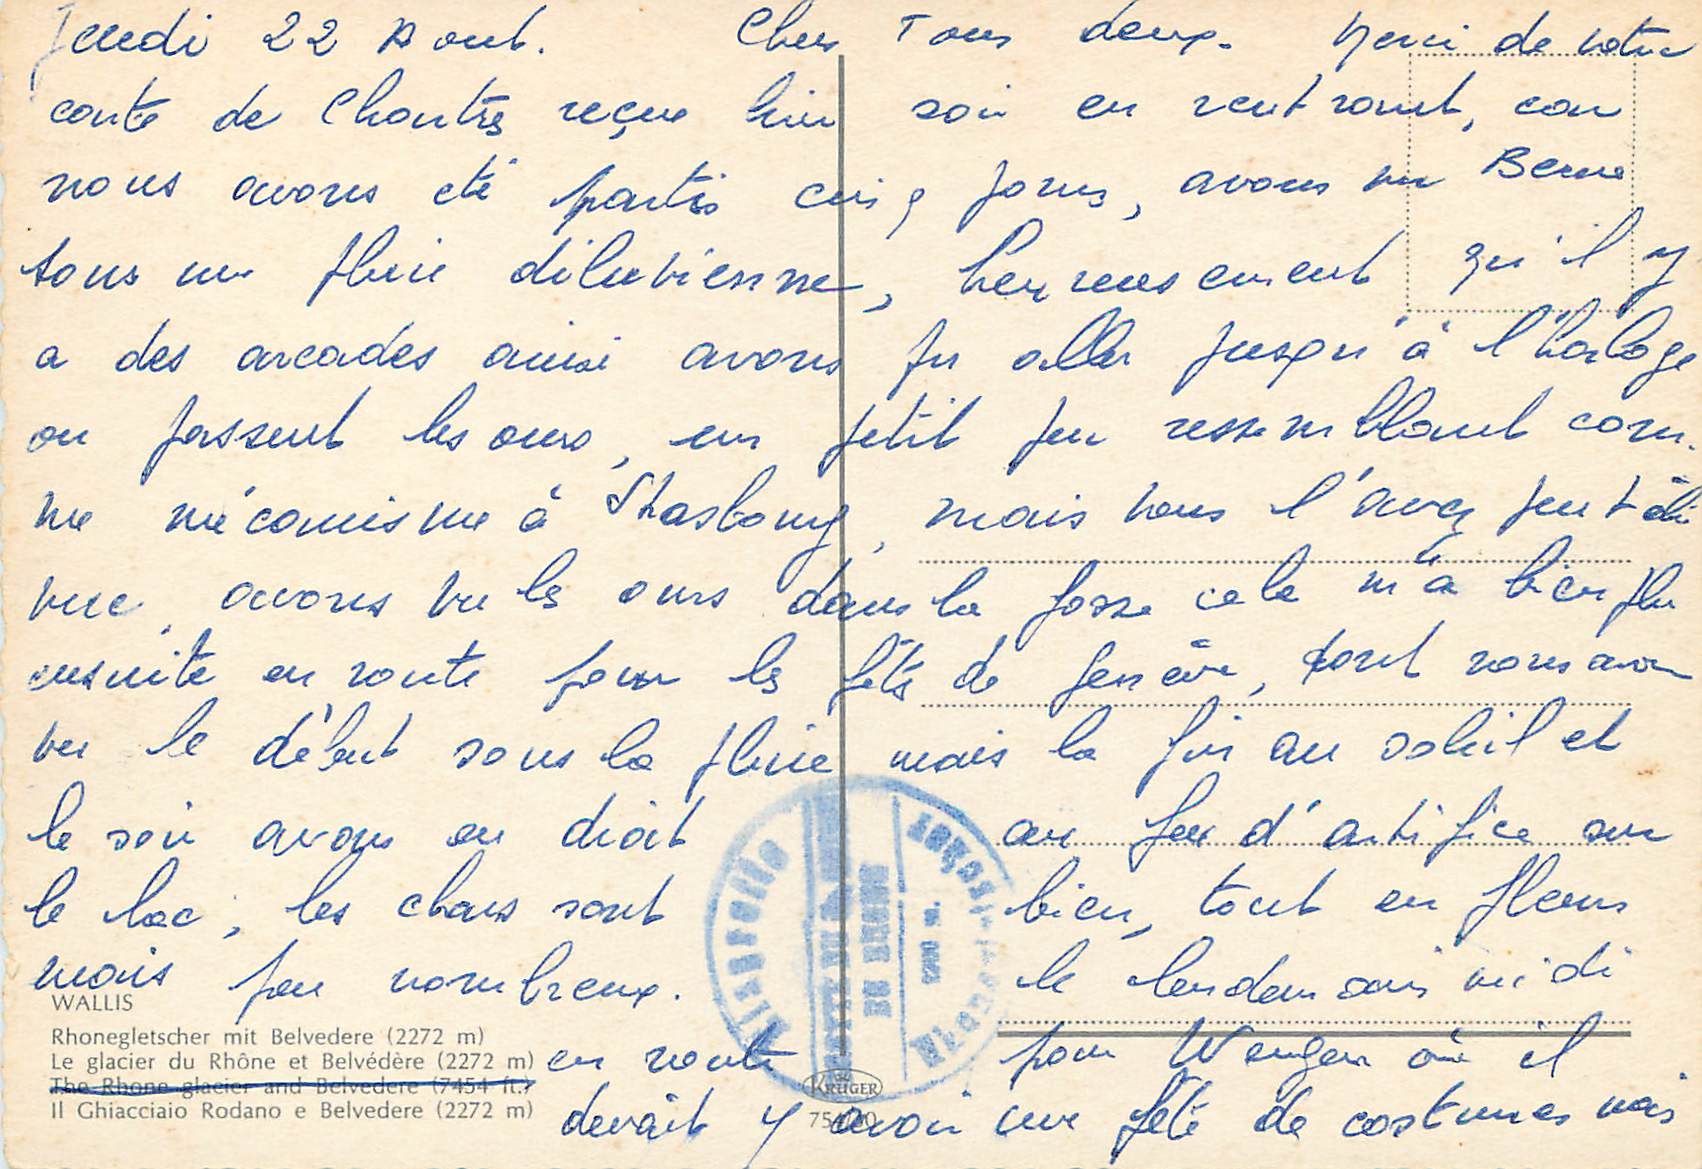 Jeudi 22 Aout. Chers Tous deux. Merci de votre
carte de Chartres reçue hier soir en rentrant, car
nous avons été partis cinq jours, avons vu Berne
sous une pluie diluvienne, heureusement qu'il y
a des arcades ainsi avons pu aller jusqu'à l'horloge
ou passent les ours, un petit peu ressemblant com-
me mécanisme à Strasbourg, mais vous l'avez peut être
vue, avons vu les ours dans la fosse cela m'a bien plu
ensuite en route pour les fêtes de Genève, dont nous avons
vu le début sous la pluie mais la fin au soleil et
le soir avons eu droit au feu d'artifice sur
le lac, les chars sont bien, tout en fleurs
mais peu nombreux. le lendemain midi
en route pour Wengen où il
devait y avoir une fête de costumes mais
WALLIS
Rhonegletscher mit Belvedere (2272 m)
Le glacier du Rhône et Belvédère (2272 m)
The Rhone glacier and Belvedere (7454 ft.)
Il Ghiacciaio Rodano e Belvedere (2272 m)
KRÜGER